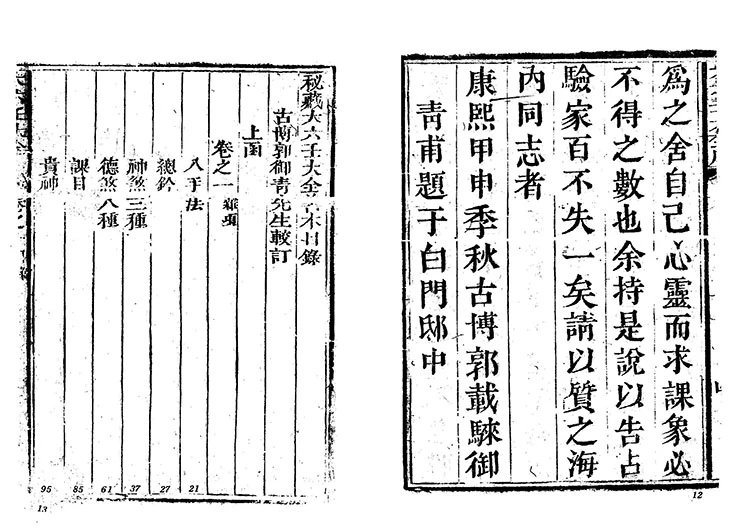 爲之舍自己心靈而求課象必
不得之數也余持是說以告占
驗家百不失一矣請以質之海
內同志者
康熙甲申季秋古博郭載騋御
靑甫題于白門邸中
12
秘藏大六壬大全善本目錄
古博郭御靑先生較訂
上函
卷之一
入手法 21
總鈐 27
神煞三種 37
德煞八種 61
課目 85
貴神 95
13